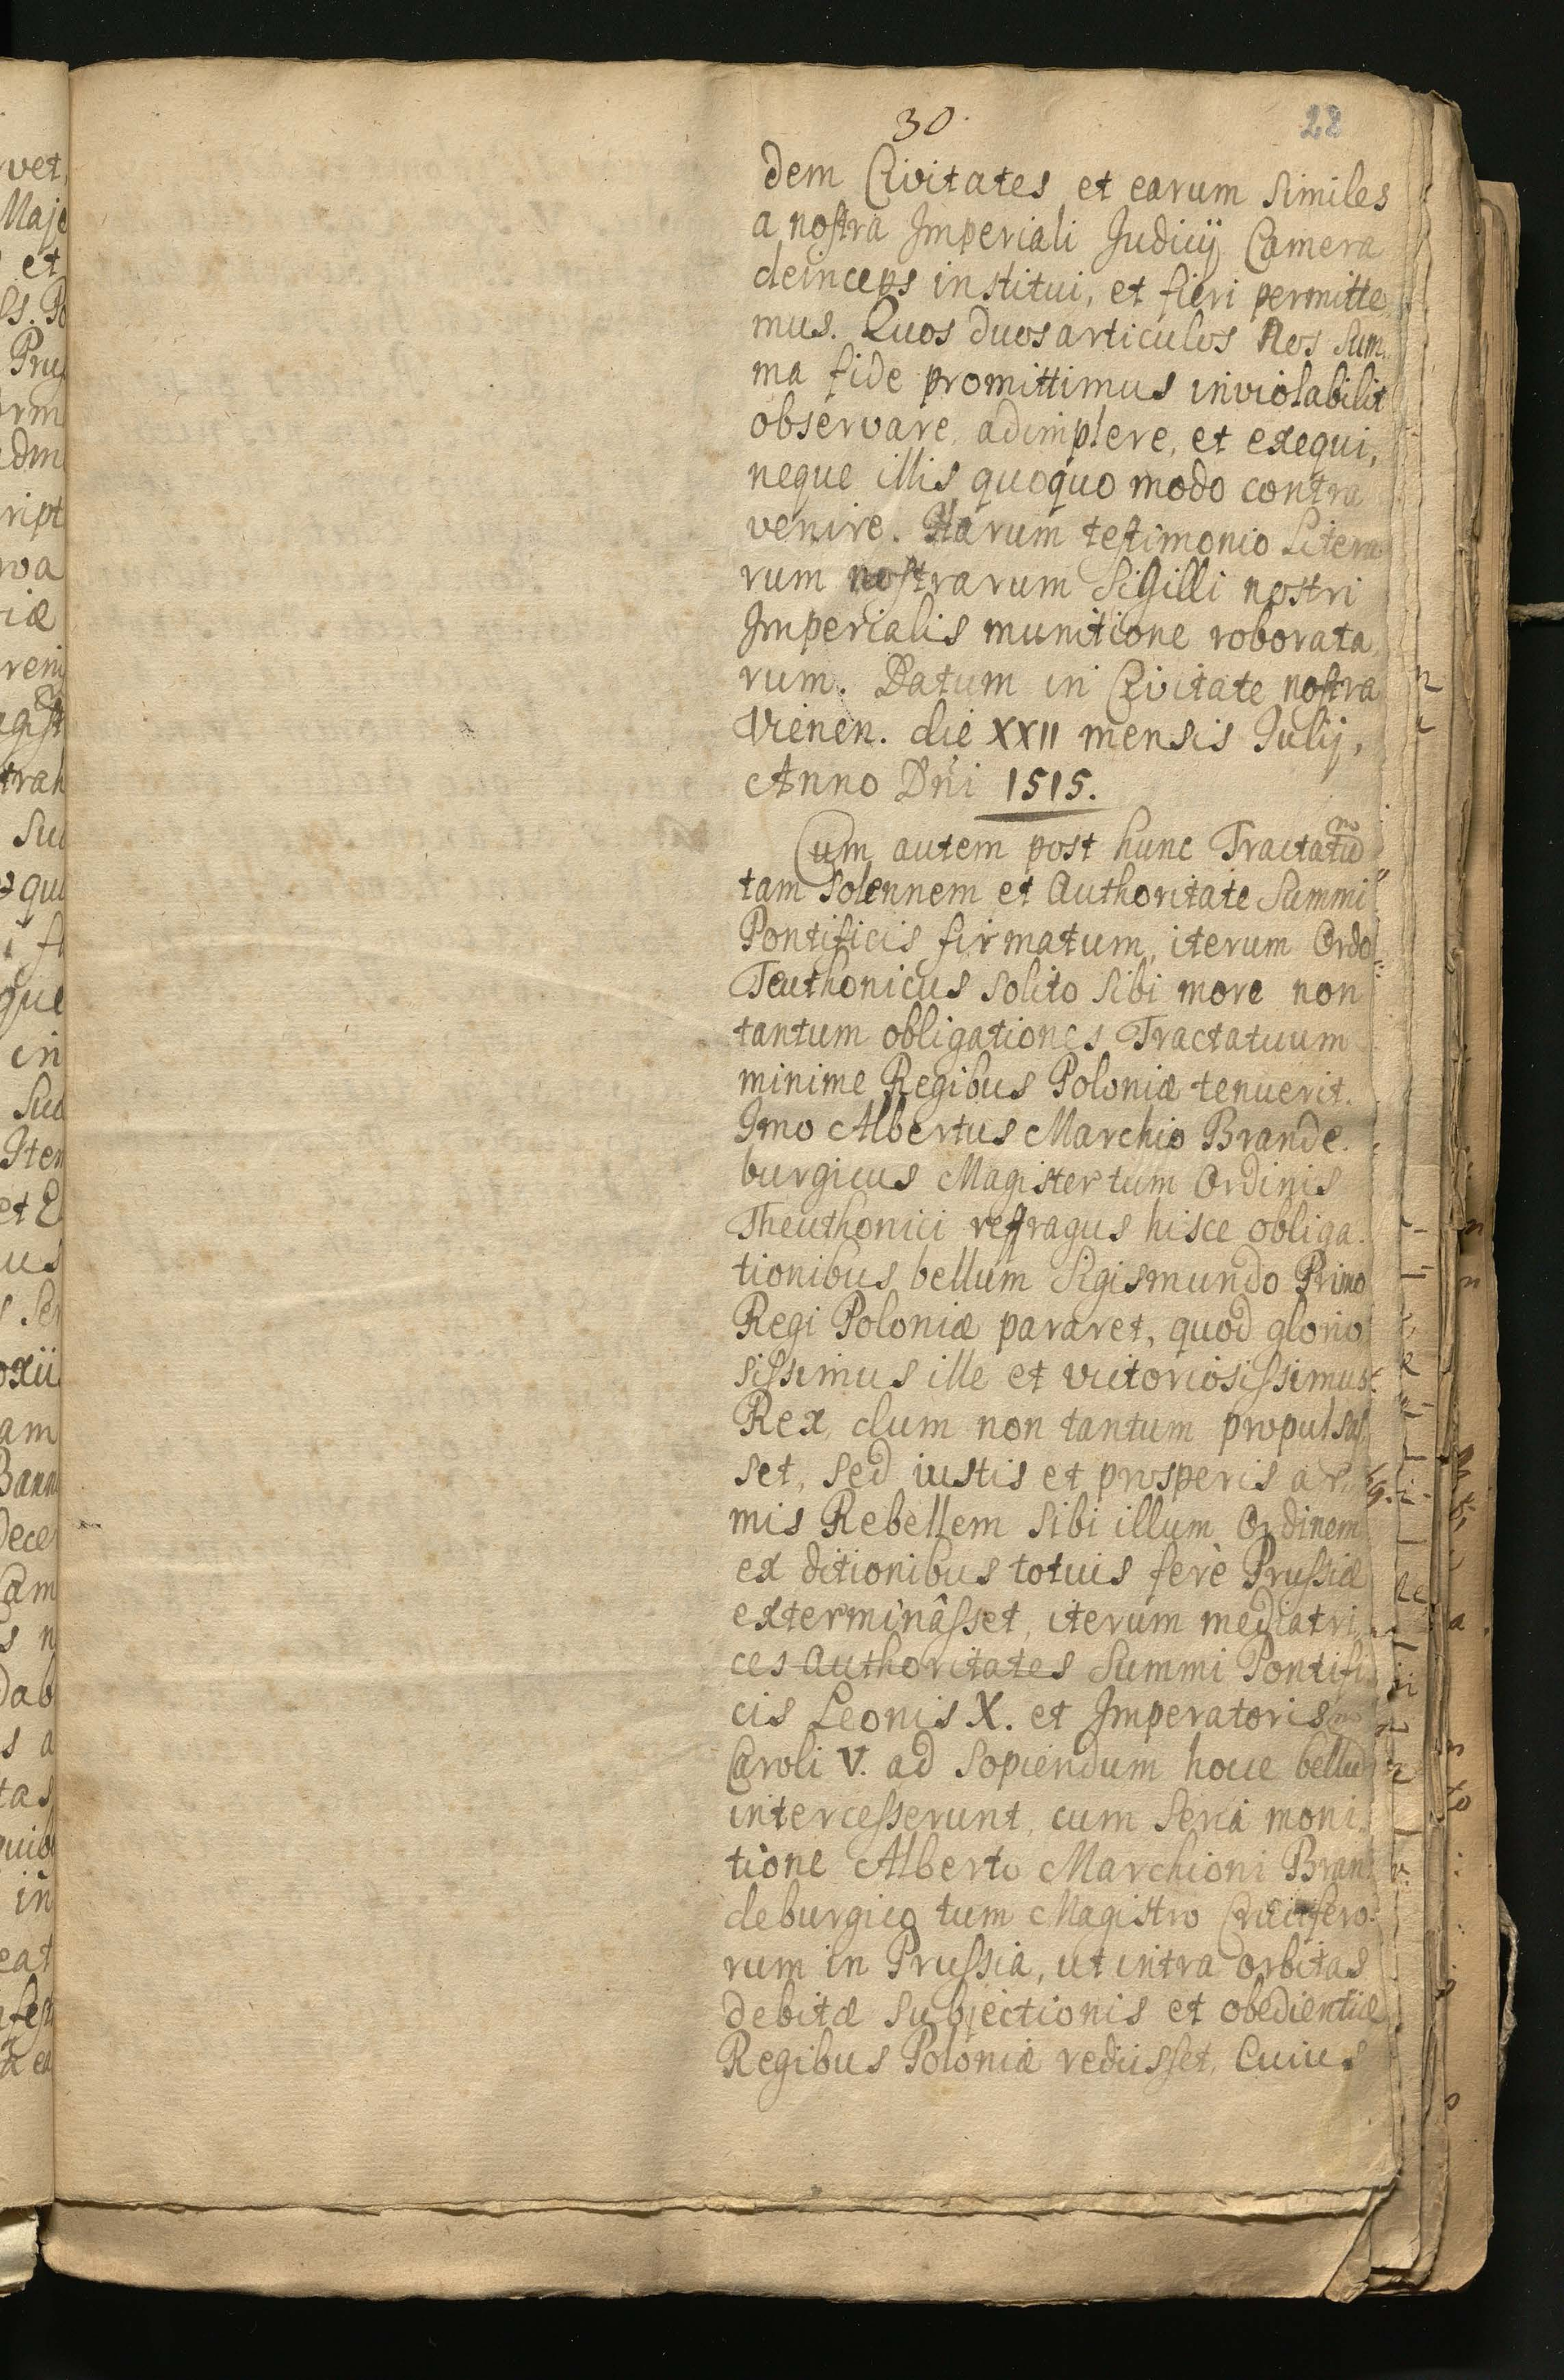 30.
28
dem Civitates et earum similes
a nostra Imperiali Judicij Camera
deinceps institui, et fieri permitte,
mus. Quos duos articulos Nos sum,
ma fide promittimus inviolabilit
observare, adimplere, et exequi,
neque illis quoquo modo contra
venire. Harum testimonio Litera
rum nostrarum Sigilli nostri
Imperialis munitione roborata,
rum. Datum in Civitate nostra
Vienen. die XXII mensis Julij,
Anno Dni 1515.
Cum autem post hunc Tractatum
tam solennem et Authoritate Summi
Pontificis firmatum, iterum Ordo
Teuthonicus solito sibi more non
tantum obligationes Tractatuum
minime Regibus Poloniæ tenuerit.
Imo Albertus Marchio Brande.
burgicus Magister tum Ordinis
Theuthonici refragus hisce obliga.
tionibus bellum Sigismundo Primo
Regi Poloniæ pararet, quod glorio
sissimus ille et victoriosissimus
Rex, dum non tantum propulsas
set, sed iustis et prosperis ar,
mis Rebellem sibi illum Ordinem
ex ditionibus totius ferè Prussiæ
exterminâsset, iterum mediatri,
ces Authoritates Summi Pontifi
cis Leonis X. et Imperatoris
Caroli V. ad sopiendum hocce bellum
intercesserunt, cum seria moni,
tione Alberto Marchioni Bran
deburgico tum Magistro Crucifero
rum in Prussia, ut intra orbitas
debitæ subjectionis et obedientiæ
Regibus Poloniæ rediisset, Cuius